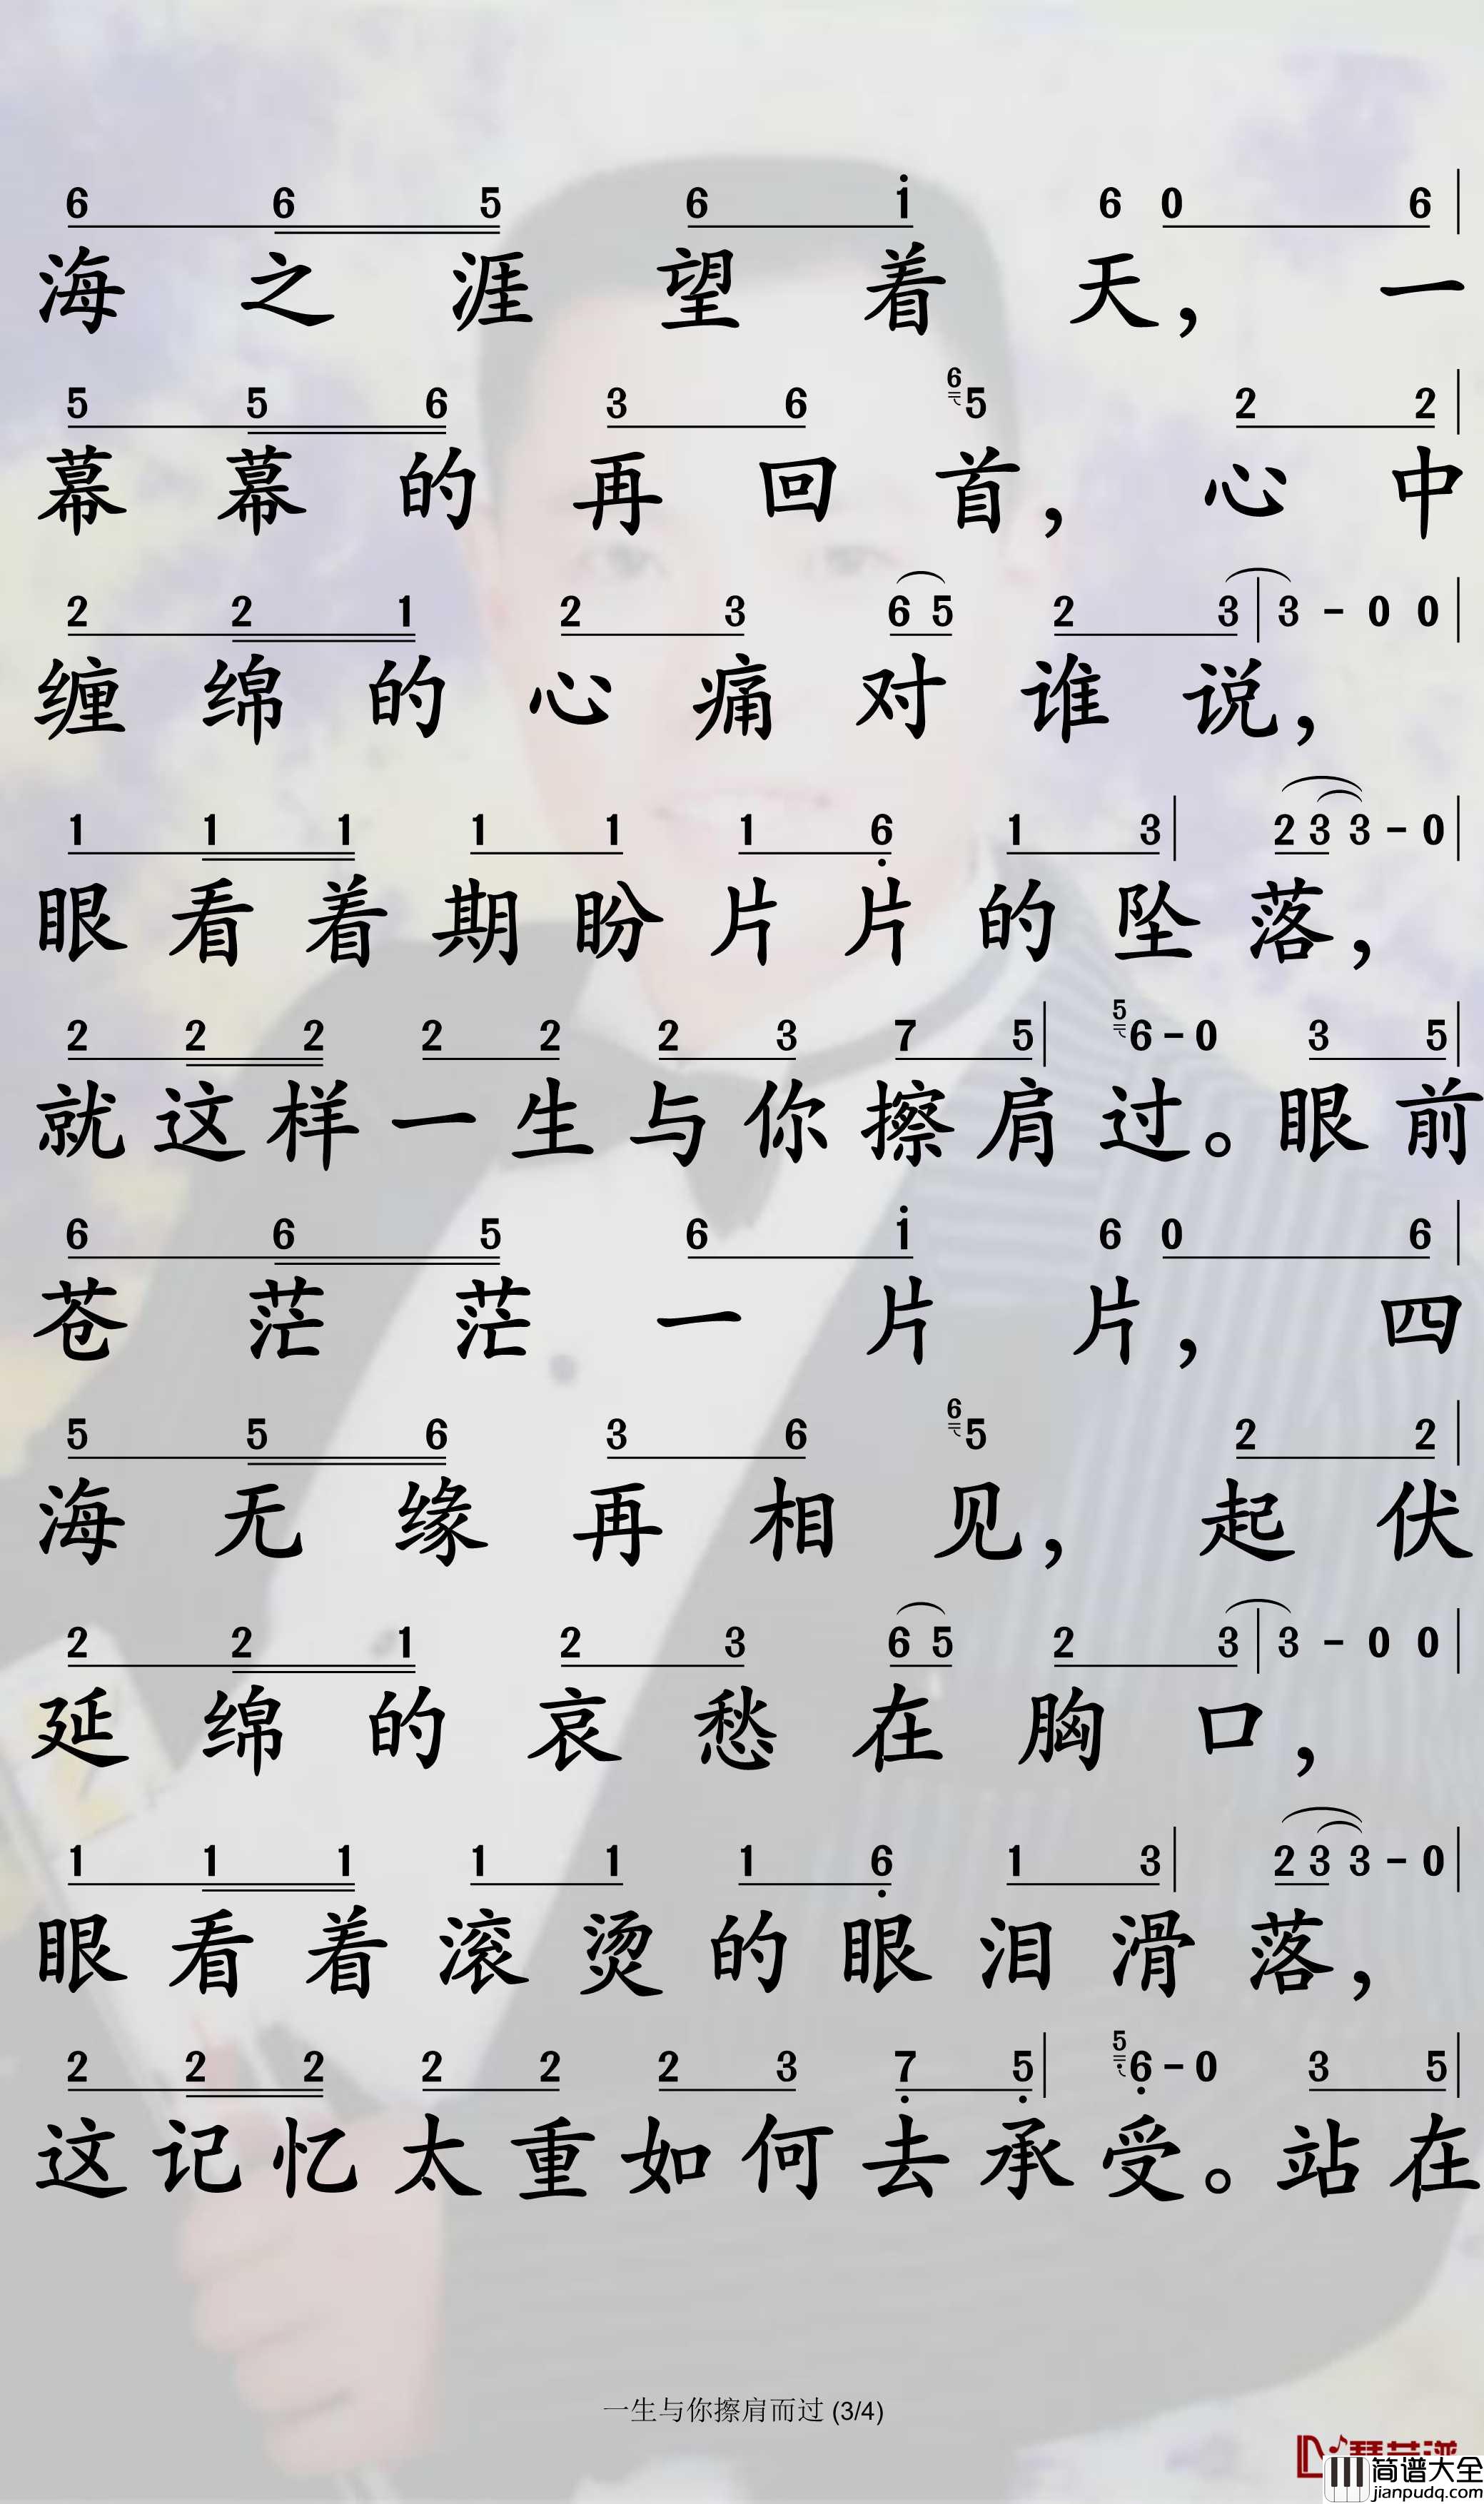 6 6 5 6 1 6 0 6
海之涯望着天，一
5 5 6 3 6 6 5 2 2
幕幕的再回首，心中
2 2 1 2 3 6 5 2 3 | 3 - 0 0
缠绵的心痛对谁说，
1 1 1 1 1 1 6 1 3 | 2 3 3 - 0
眼看着期盼片片的坠落，
2 2 2 2 2 2 3 7 5 | 5 6 - 0 3 5
就这样一生与你擦肩过。眼前
6 6 5 6 1 6 0 6
苍茫茫一片片，四
5 5 6 3 6 6 5 2 2
海无缘再相见，起伏
2 2 1 2 3 6 5 2 3 | 3 - 0 0
延绵的哀愁在胸口，
1 1 1 1 1 1 6 1 3 | 2 3 3 - 0
眼看着滚烫的眼泪滑落，
2 2 2 2 2 2 3 7 5 | 5 6 - 0 3 5
这记忆太重如何去承受。站在
一生与你擦肩而过 (3/4)
简谱大全
jianpudq.com